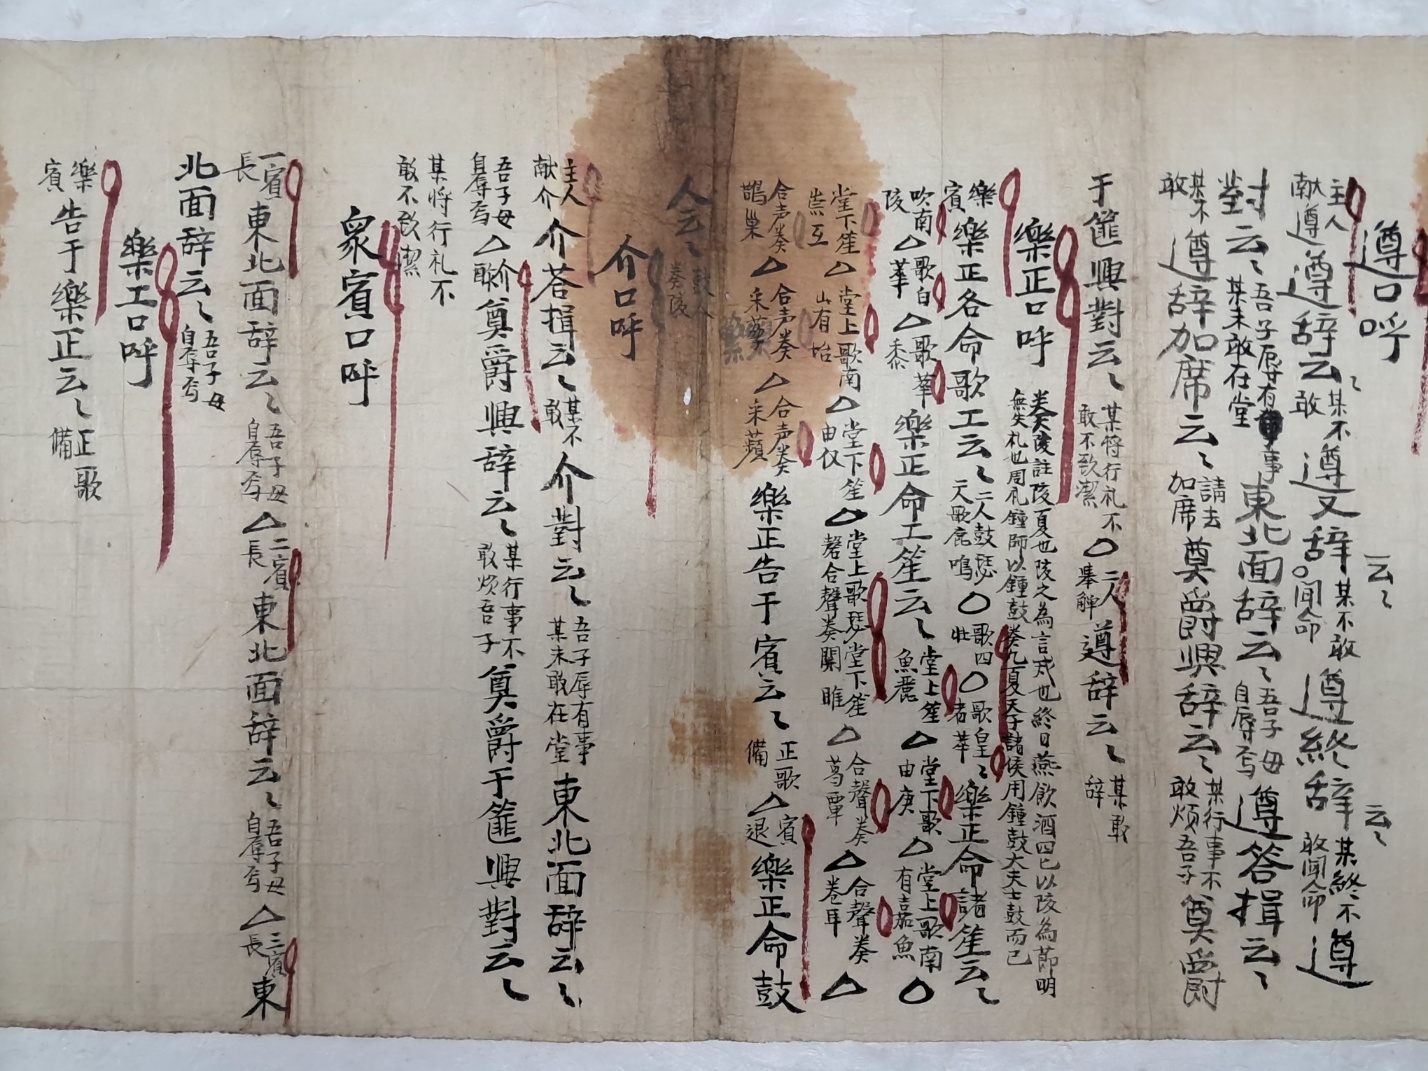 遵口呼
主人献遵遵辞云〻某不敢遵又辞某不敢○聞命遵終辞某終不敢聞命遵
云〻
云〻
對云〻吾子辱有事某未敢在堂東北面辞云〻吾子毋自辱焉遵答揖云〻
某不敢遵辞加席云〻請去加席奠爵興辞云〻某行事不敢煩吾子奠爵
于篚興對云〻某將行礼不敢不致潔○二人舉觶遵辞云〻某敢辞
樂正口呼
奏陔註陔夏也陔之為言戒也終日燕飲酒罒已以陔為節明無失礼也周礼鐘師以鐘鼓奏九夏天子諸侯用鐘鼓大夫士鼓而已
樂賓樂正各命歌工云〻二人鼓瑟一天歌鹿鳴○歌四牡○歌皇〻者華樂正命諸笙云〻
吹南陔△歌白華△歌華黍樂正命工笙云〻堂上笙魚麗△堂下歌由庚△堂上歌南有嘉魚○
堂下笙崇丘△堂上歌南山有台△堂下笙由仪△堂上歌瑟堂下笙磬合聲奏關雎△合聲奏葛覃△合聲奏卷耳△
合声奏鵲巢△合声奏采蘩△合声奏采蘋樂正告于賓云〻正歌備△賓退樂正命鼓
人云〻鼓人奏陔
介口呼
主人献介介荅揖云〻某不敢介對云〻吾子辱有事某未敢在堂東北面辞云〻
吾子毋自辱焉△聯介奠爵興辞云〻某行事不敢烦吾子奠爵于篚興對云〻
某将行礼不敢不致潔
衆賓口呼
一賓長東北面辞云〻吾子毋自辱焉△二賓長東北面辞云〻吾子毋自辱焉△三賓長東
北面辞云〻吾子毋自辱焉
樂工口呼
樂賓告于樂正云〻正歌備